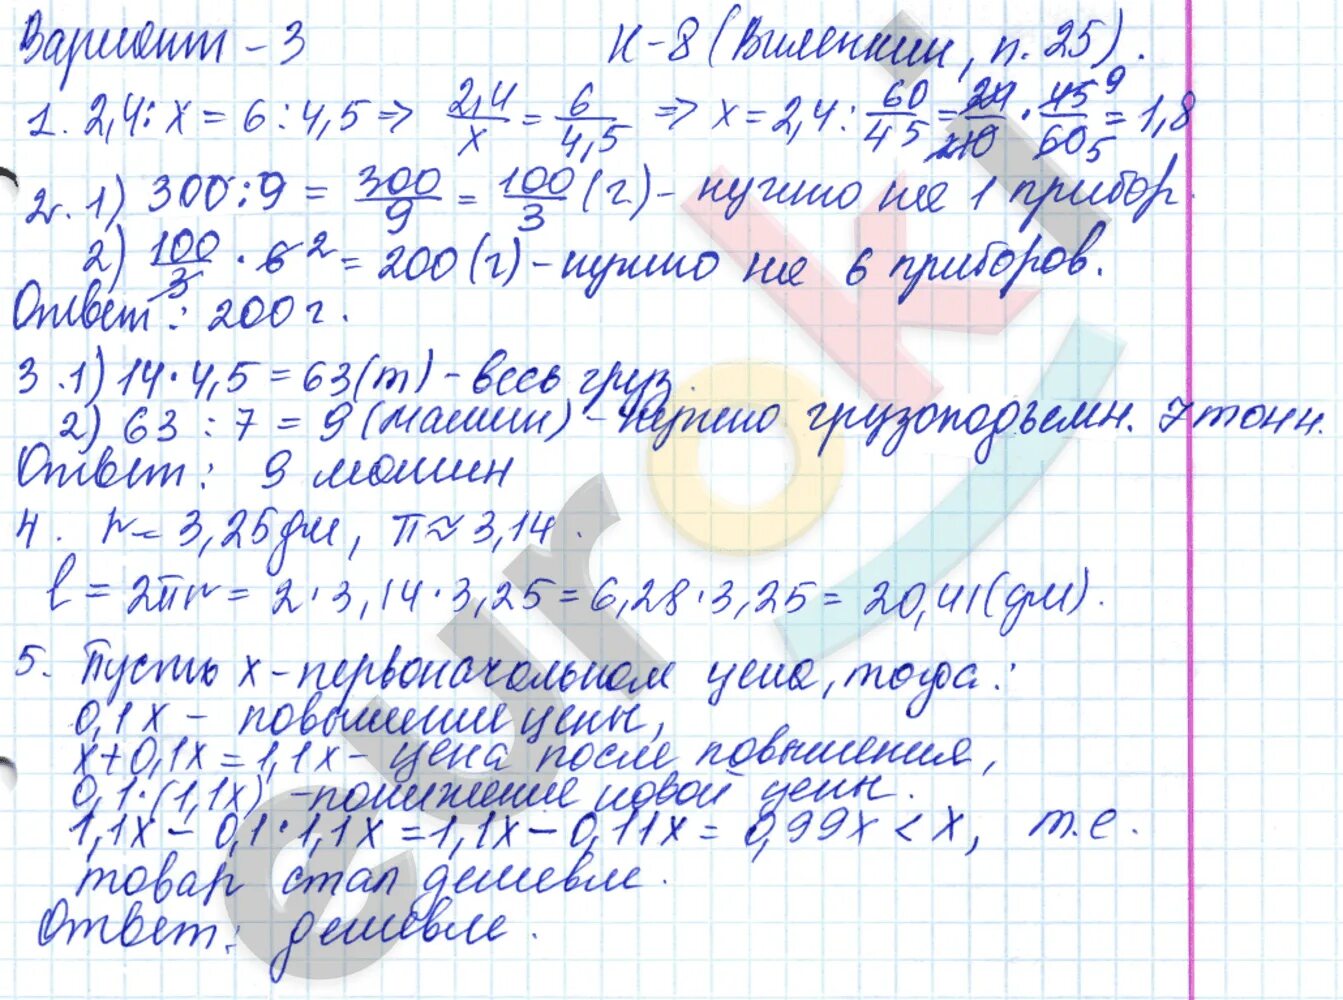 Вариант – 3 К-8 (Виленкин, п. 25).
1. 2,4 : x = 6 : 4,5 => 2,4/x = 6/4,5 => x = 2,4 : 60/45 = 24/10 · 45 9/60 5 = 1,8
2. 1) 300 : 9 = 300/9 = 100/3 (г) – нужно на 1 прибор.
2) 100/3 · 6 2 = 200 (г) – нужно на 6 приборов.
Ответ: 200 г.
3. 1) 14 · 4,5 = 63 (т) – весь груз.
2) 63 : 7 = 9 (машин) – нужно грузоподъемн. 7 тонн.
Ответ: 9 машин
4. r = 3,25 дм, π ≈ 3,14.
l = 2πr = 2 · 3,14 · 3,25 = 6,28 · 3,25 = 20,41 (дм).
5. Пусть x – первоначальная цена, тогда:
0,1x – повышение цены,
x + 0,1x = 1,1x – цена после повышения,
0,1 · (1,1x) – понижение новой цены.
1,1x – 0,1 · 1,1x = 1,1x – 0,11x = 0,99x < x, т.е.
товар стал дешевле.
Ответ: дешевле.
euroki